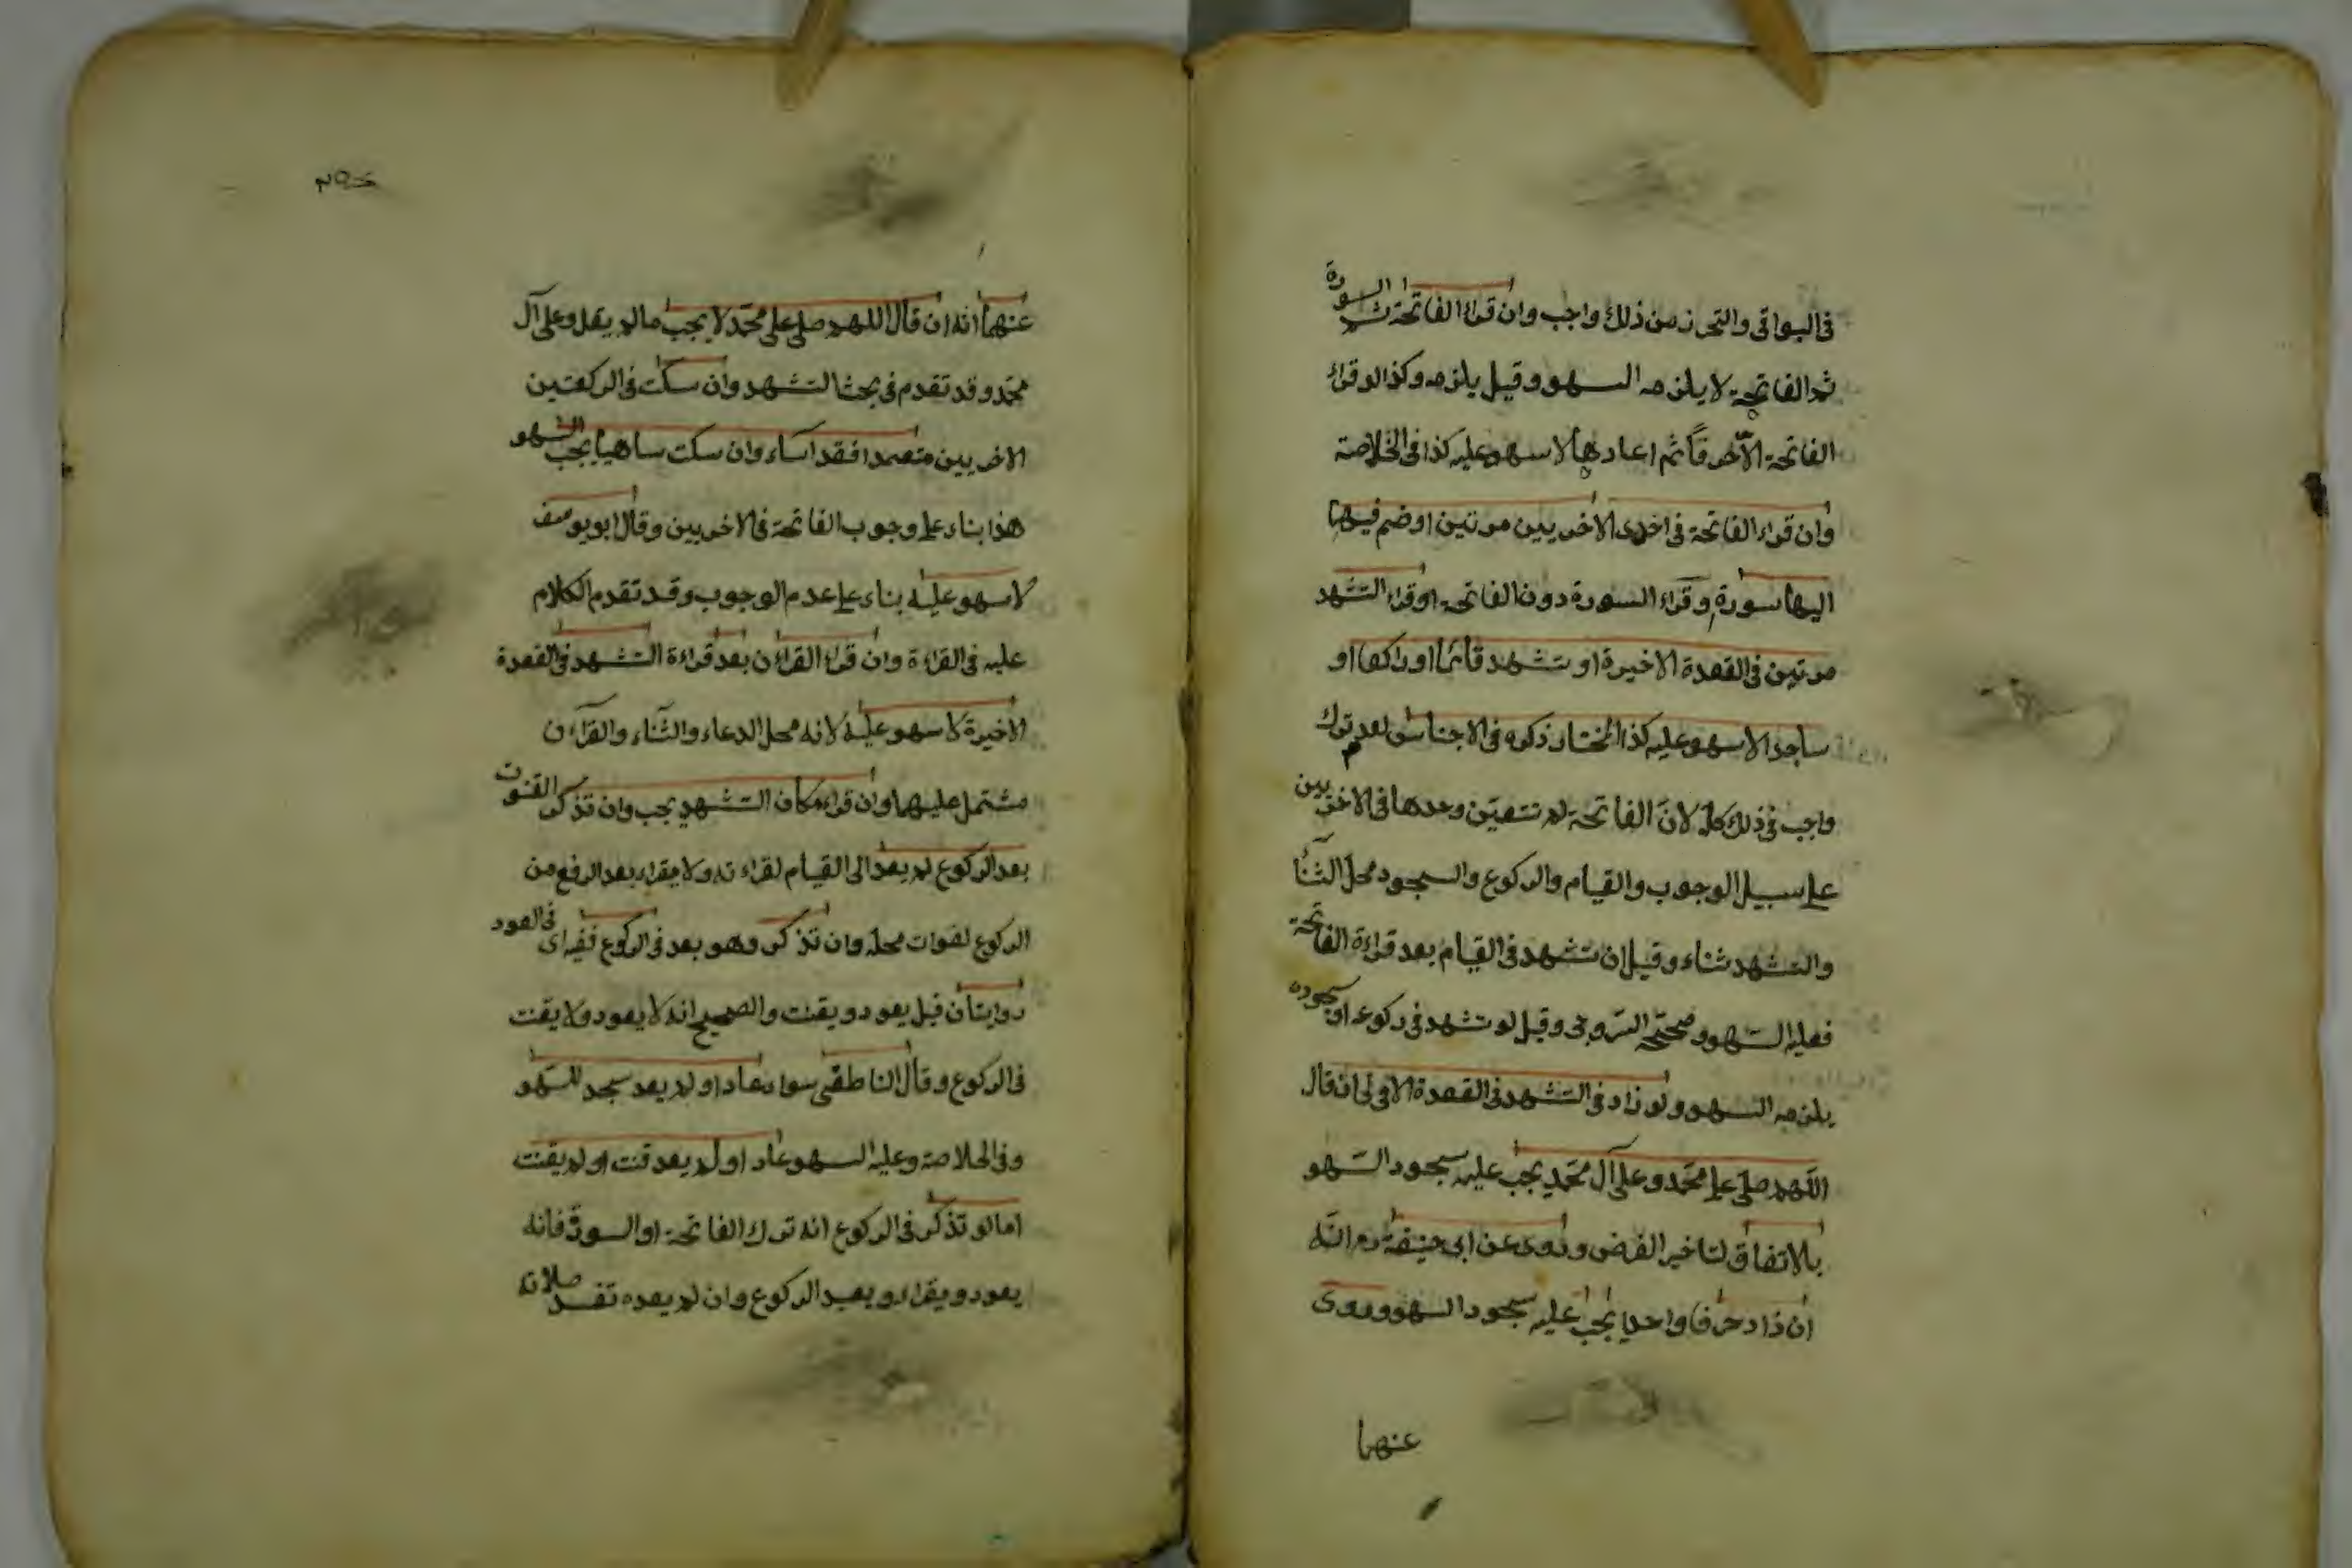 فى البواقى والتحرز من ذلك واجب وان قراء الفاتحة ثم السورة
ثم الفاتحة لا يلزمه السهو وقيل يلزمه وكذا لو قراء
الفاتحة الا حرفا ثم اعادها لا سهو عليه كذا فى الخلاصة
وان قراء الفاتحة فى احدى الاخريين مرتين او ضم فيها
اليها سورة او قراء السورة دون الفاتحة او قراء التشهد
مرتين فى القعدة الاخيرة او تشهد قائما او راكعا او
ساجدا لا سهو عليه كذا المختار ذكره فى الاجناس لعدم ترك
واجب فى ذلك كله لان الفاتحة لم تتعين وحدها فى الاخريين
على سبيل الوجوب والقيام والركوع والسجود محل الثناء
والتشهد ثناء وقيل ان تشهد فى القيام بعد قراءة الفاتحة
فعليه السهو وصححه السروجى وقيل لو تشهد فى ركوعه او سجوده
يلزمه السهو ولو زاد فى التشهد فى القعدة الاولى ان قال
اللهم صلى على محمد وعلى آل محمد يجب عليه سجود السهو
بالاتفاق لتاخير الفرض وروى عن ابى حنيفة رم الله
ان زاد حرفا واحدا يجب عليه سجود السهو وروى
عنهما
٢٥٢
عنهما انه ان قال اللهم صلى على محمد لا يجب ما لم يقل وعلى آل
محمد وقد تقدم فى بحث التشهد وان سكت فى الركعتين
الاخريين متعمدا فقد اساء وان سكت ساهيا يجب السهو
هذا بناء على وجوب الفاتحة فى الاخريين وقال ابو يوسف
لا سهو عليه بناء على عدم الوجوب وقد تقدم الكلام
عليه فى القراءة وان قراء القراءن بعد قراءة التشهد فى القعدة
الاخيرة لا سهو عليه لانه محل الدعاء والثناء والقرآن
مشتمل عليهما وان قراء مكان التشهد يجب وان تذكر القنوت
بعد الركوع لم يعد الى القيام لقراءته ولا يقراء بعد الرفع من
الركوع لفوات محله وان تذكر وهو بعد فى الركوع ففيه اى فى العود
روايتان قيل يعود ويقنت والصحيح انه لا يعود ولا يقنت
فى الركوع وقال الناطفى سواء عاد او لم يعد سجد للسهو
وفى الخلاصة وعليه السهو عاد او لم يعد قنت او لم يقنت
اما لو تذكر فى الركوع انه ترك الفاتحة او السورة فانه
يعود ويقراء ويعيد الركوع وان لم يعده تفسد صلاته